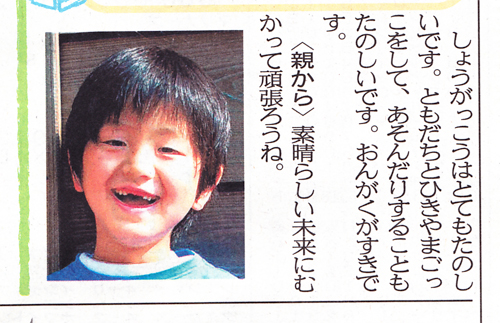 しょうがっこうはとてもたのし
いです。ともだちとひきやまごっ
こをして、あそんだりすることも
たのしいです。おんがくがすきで
す。
〈親から〉素晴らしい未来にむ
かって頑張ろうね。